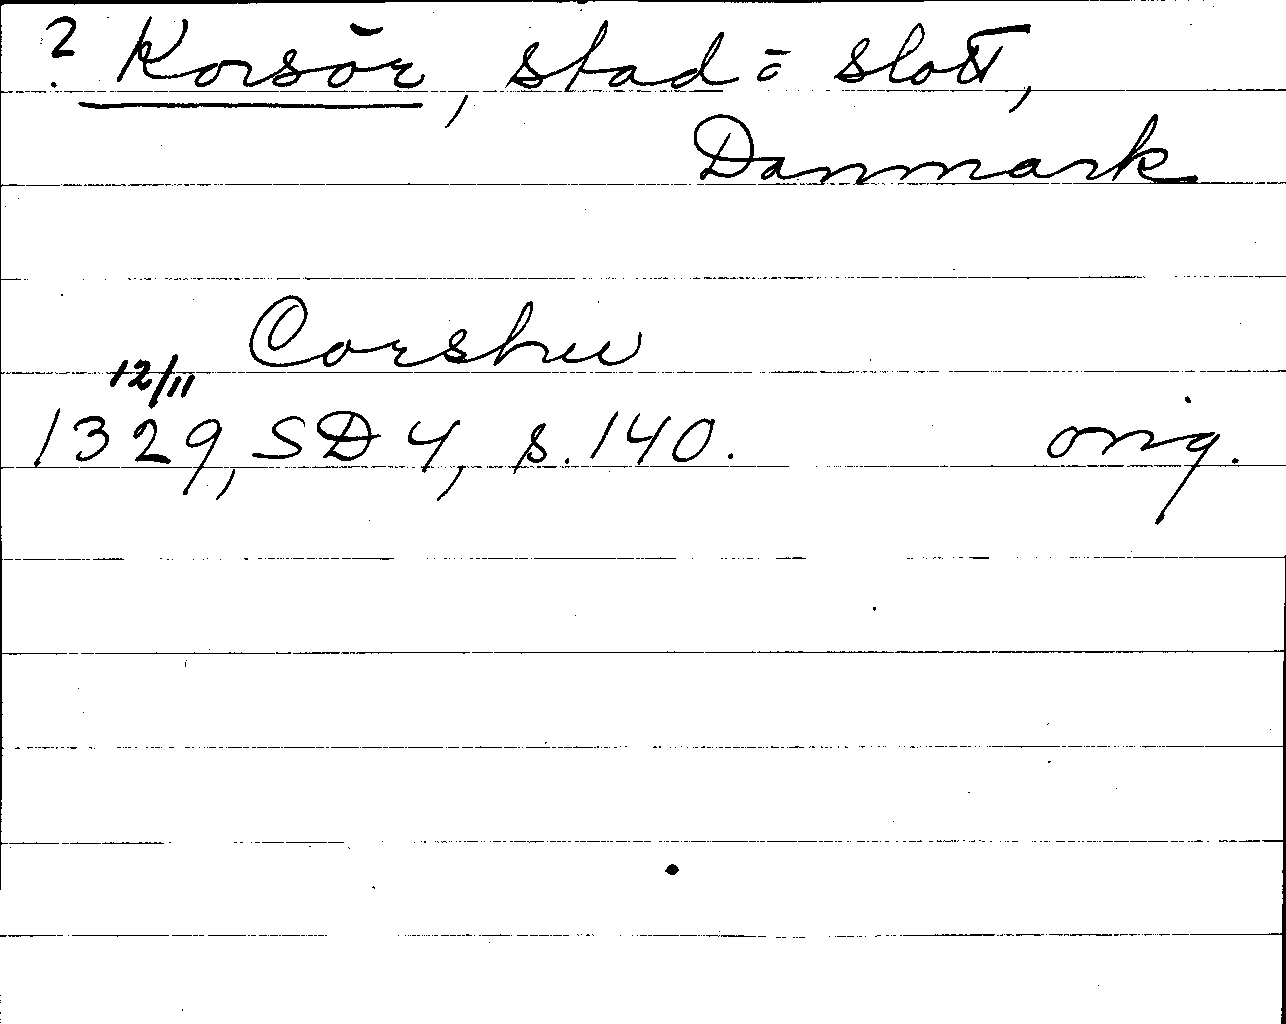 ? Korsör, stad o slott,
Danmark
Corshee
12/11
1329, SD 4, s. 140. orig.